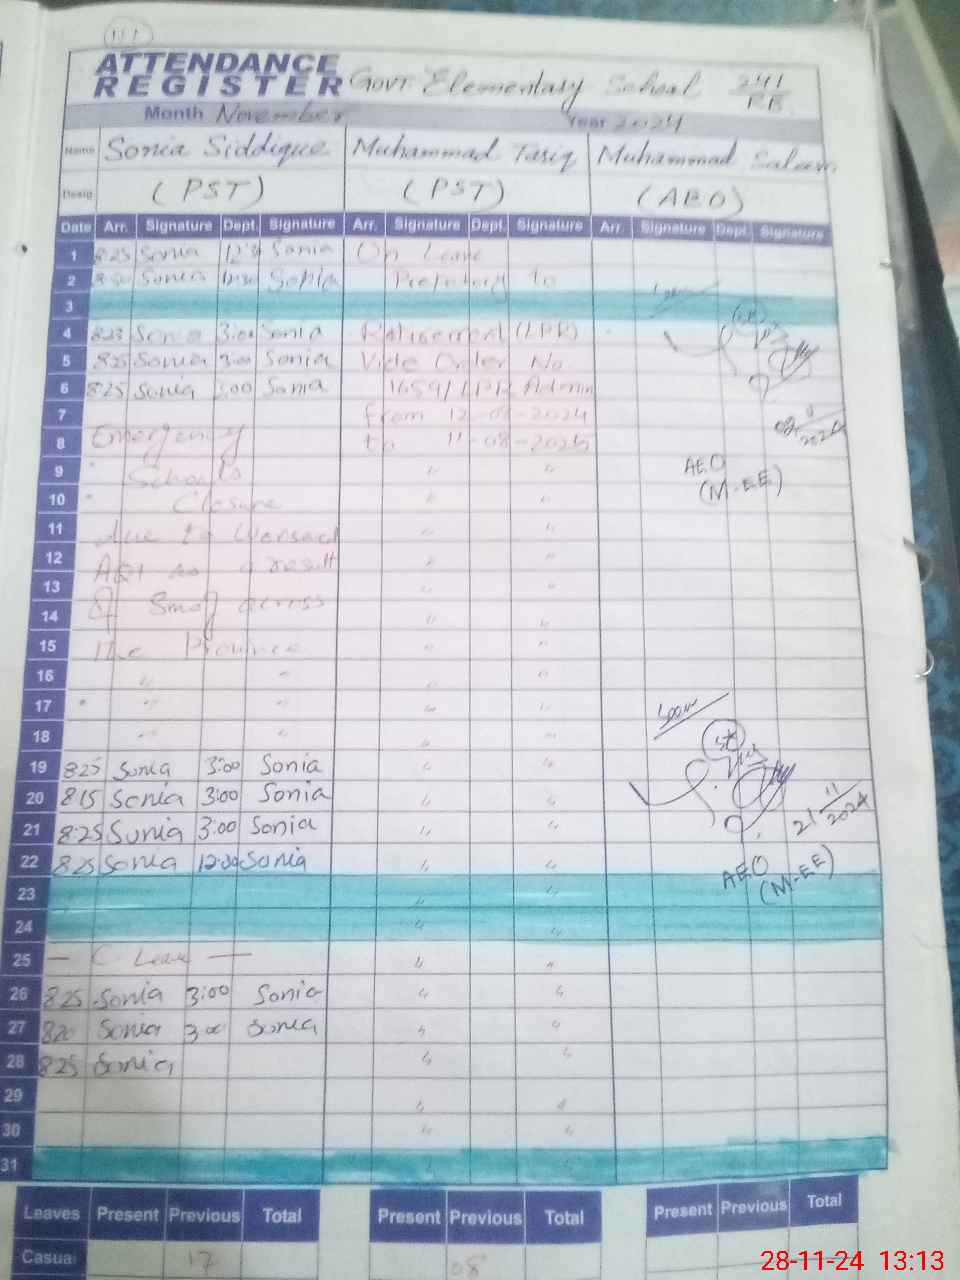 ATTENDANCE
REGISTER Govt Elementary School 241/RB
Month November Year 2024
Name Sonia Siddique Muhammad Tariq Muhammad Saleem
Desig. (PST) (PST) (AEO)
Date Arr. Signature Dept. Signature Arr. Signature Dept. Signature Arr. Signature Dept. Signature
1 8:25 Sonia Sonia On Leave
2 Sonia 12:30 Sonia Preparatory to
3
4 8:25 Sonia 3:00 Sonia Retirement (LPR)
5 8:25 Sonia 3:00 Sonia Vide Order No
6 8:25 Sonia 3:00 Sonia 1659/LPR Admin
7 From 2024
8 Emergency to 2025
9 Schools " " AEO
10 Closure " " (M-EE)
11 due to Worsend " "
12 AQI as a result " "
13 Of Smog across " "
14 " "
15 The Province " "
16 " " " "
17 " " " "
18 " " " "
19 8:25 Sonia 3:00 Sonia " "
20 8:15 Sonia 3:00 Sonia " "
21 8:25 Sonia 3:00 Sonia " " 21/11/2024
22 8:25 Sonia 12:00 Sonia " " AEO
23 " " (M-EE)
24 " "
25 — C. Leave — " "
26 8:25 Sonia 3:00 Sonia " "
27 8:20 Sonia 3:00 Sonia " "
28 8:25 Sonia " "
29 " "
30 " "
31
Leaves Present Previous Total Present Previous Total Present Previous Total
Casual 17 08
28-11-24 13:13